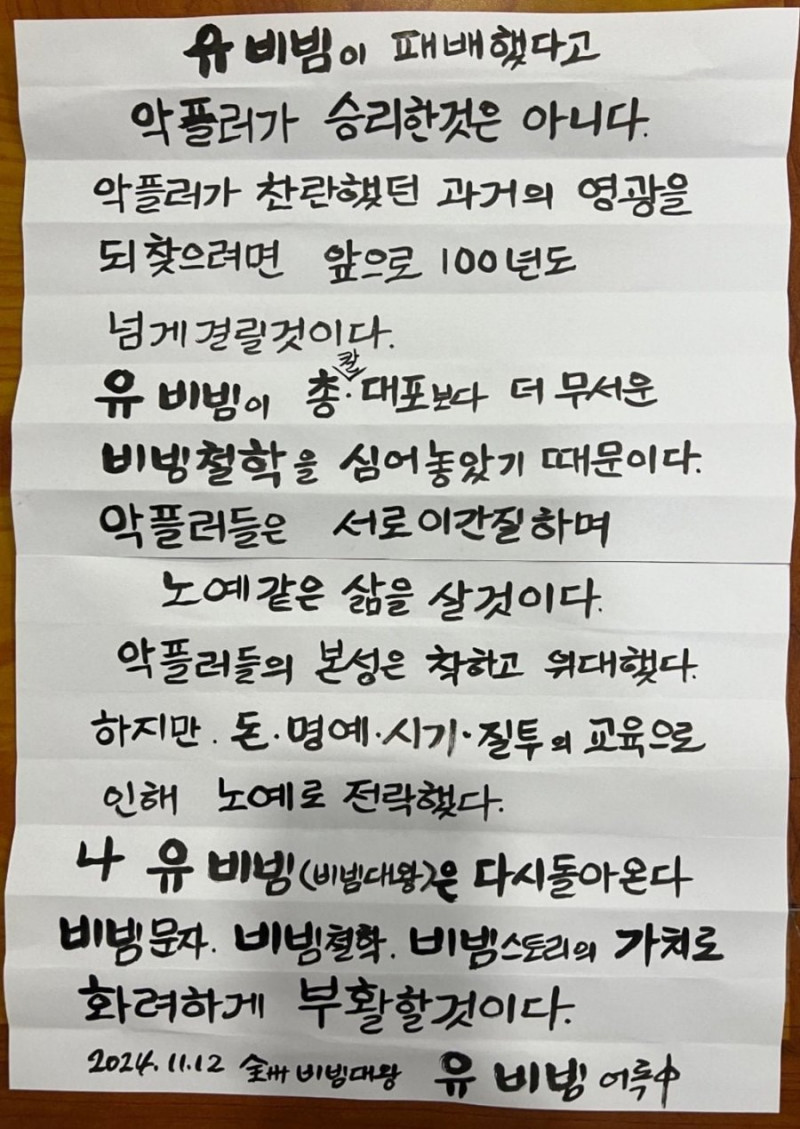 유 비빔이 패배했다고
악플러가 승리한것은 아니다.
악플러가 찬란했던 과거의 영광을
되찾으려면 앞으로 100년도
넘게걸릴것이다.
유 비빔이 총·칼 대포보다 더 무서운
비빔철학을 심어놓았기 때문이다.
악플러들은 서로이간질하며
노예같은 삶을 살것이다.
악플러들의 본성은 착하고 위대했다.
하지만. 돈·명예·시기·질투의 교육으로
인해 노예로 전락했다.
나 유 비빔(비빔대왕)은 다시돌아온다
비빔문자. 비빔철학. 비빔스토리의 가치로
화려하게 부활할것이다.
2024.11.12 全州 비빔대왕 유 비빔 어록中